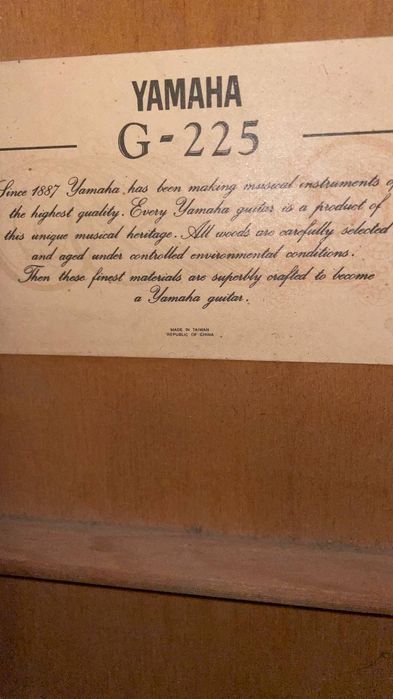 YAMAHA
G-225
Since 1887 Yamaha has been making musical instruments of
the highest quality. Every Yamaha guitar is a product of
this unique musical heritage. All woods are carefully selected
and aged under controlled environmental conditions.
Then these finest materials are superbly crafted to become
a Yamaha guitar.
MADE IN TAIWAN
REPUBLIC OF CHINA